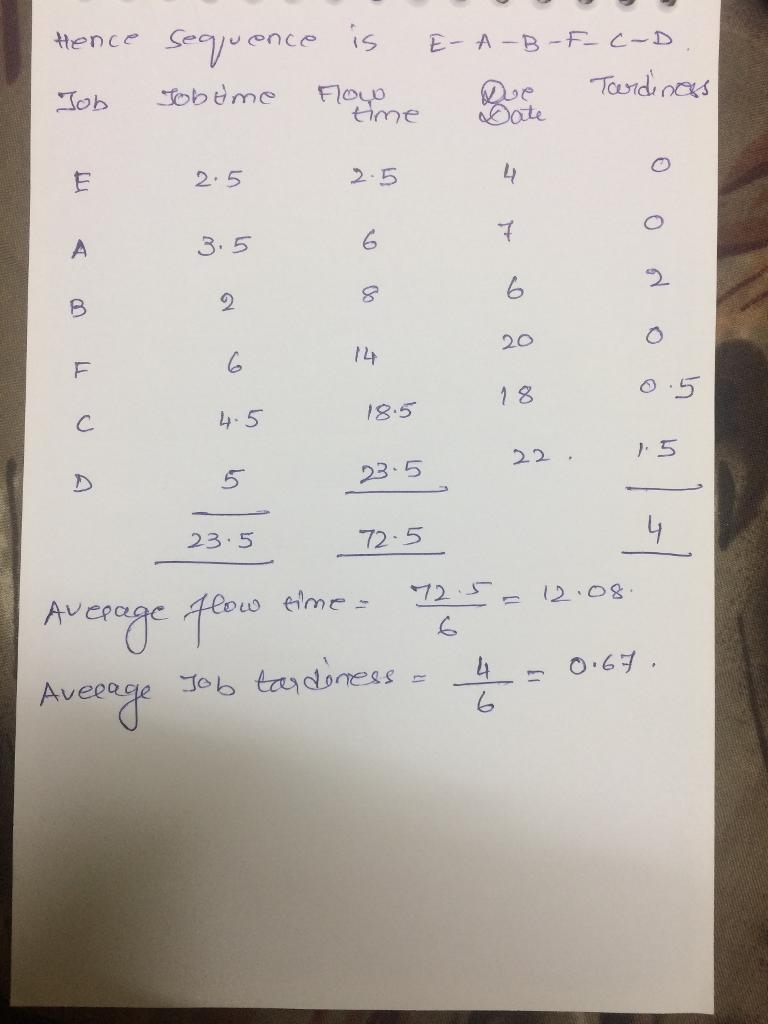 Hence Sequence is E-A-B-F-C-D.
Job Jobtime Flow time Due Date Tardiness
E 2.5 2.5 4 0
A 3.5 6 7 0
B 2 8 6 2
F 6 14 20 0
C 4.5 18.5 18 0.5
D 5 23.5 22. 1.5
23.5 72.5 4
Average flow time = 72.5/6 = 12.08.
Average Job tardiness = 4/6 = 0.67.